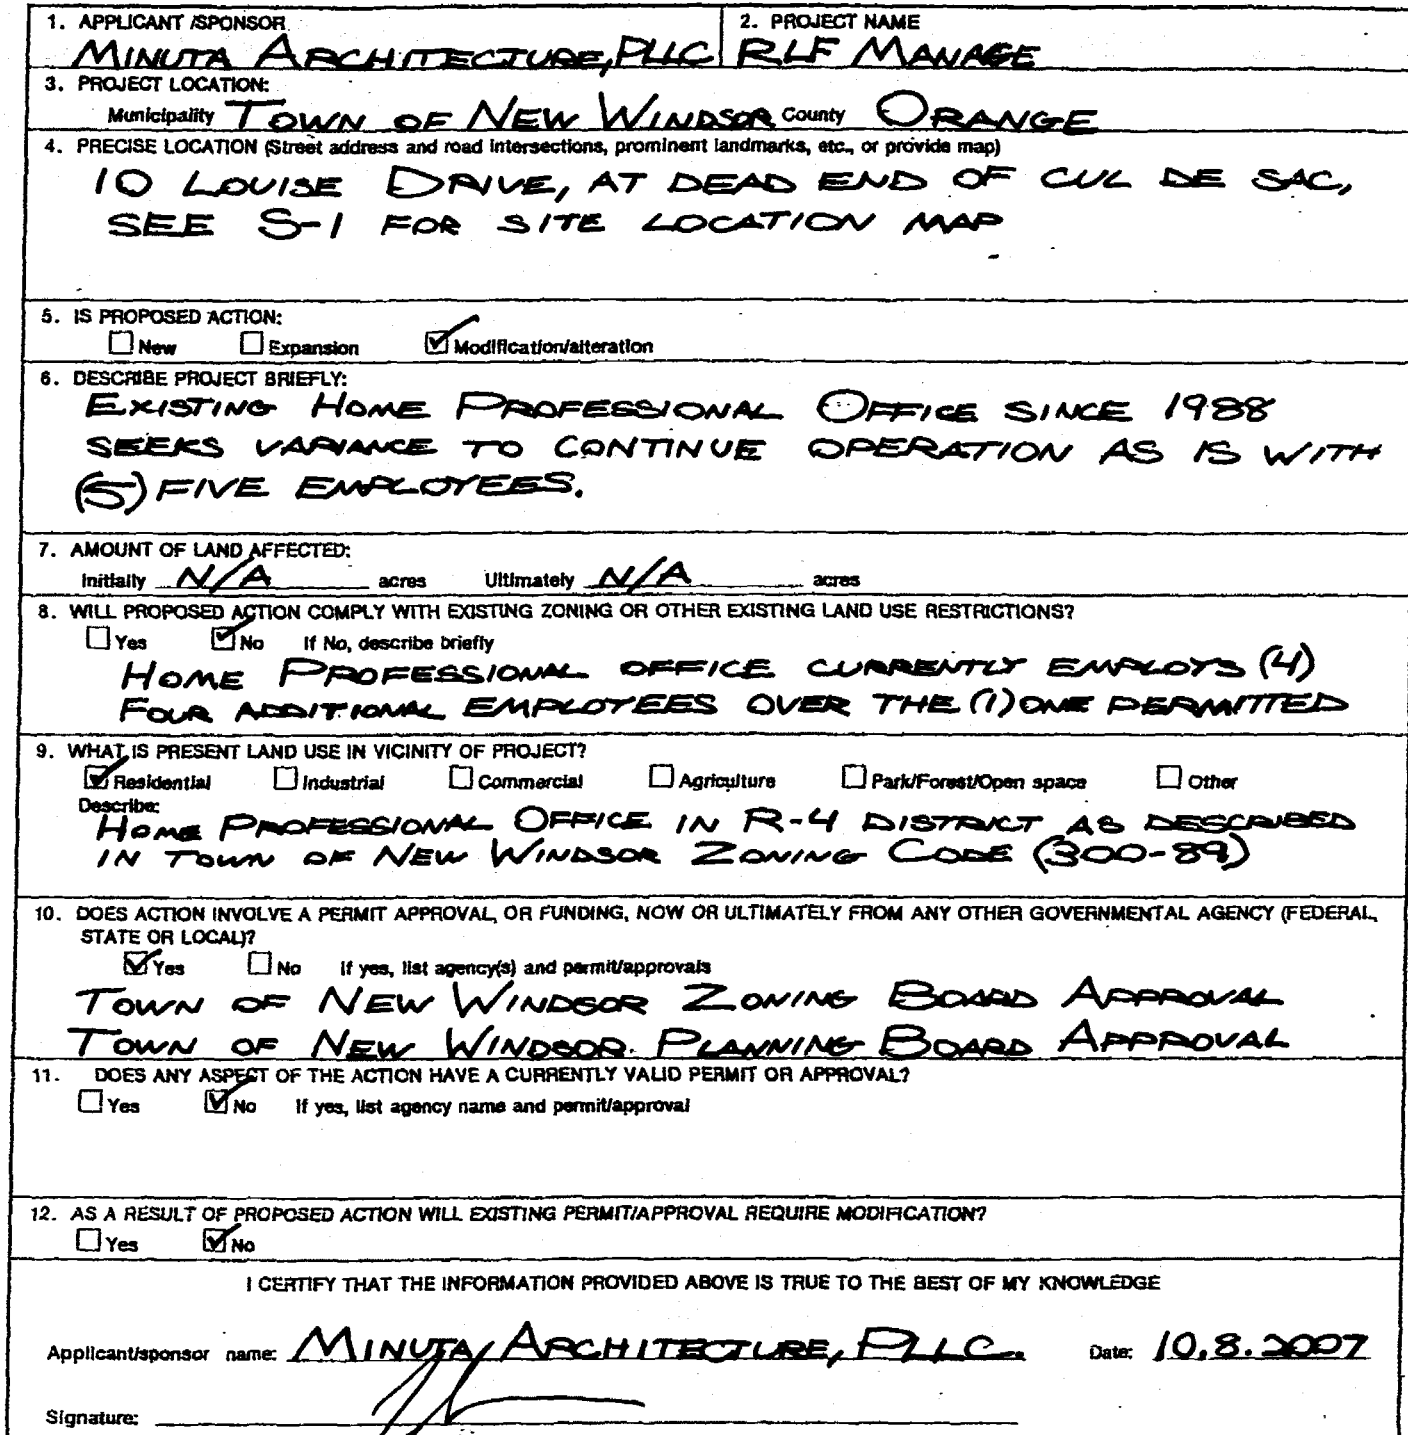 1. APPLICANT /SPONSOR
MINUTA ARCHITECTURE, PLLC
2. PROJECT NAME
RLF MANAGE
3. PROJECT LOCATION:
Municipality TOWN OF NEW WINDSOR County ORANGE
4. PRECISE LOCATION (Street address and road intersections, prominent landmarks, etc., or provide map)
10 LOUISE DRIVE, AT DEAD END OF CUL DE SAC,
SEE S-1 FOR SITE LOCATION MAP
5. IS PROPOSED ACTION:
☐ New ☐ Expansion ☑ Modification/alteration
6. DESCRIBE PROJECT BRIEFLY:
EXISTING HOME PROFESSIONAL OFFICE SINCE 1988
SEEKS VARIANCE TO CONTINUE OPERATION AS IS WITH
(5) FIVE EMPLOYEES.
7. AMOUNT OF LAND AFFECTED:
Initially N/A acres Ultimately N/A acres
8. WILL PROPOSED ACTION COMPLY WITH EXISTING ZONING OR OTHER EXISTING LAND USE RESTRICTIONS?
☐ Yes ☑ No If No, describe briefly
HOME PROFESSIONAL OFFICE CURRENTLY EMPLOYS (4)
FOUR ADDITIONAL EMPLOYEES OVER THE (1) ONE PERMITTED
9. WHAT IS PRESENT LAND USE IN VICINITY OF PROJECT?
☑ Residential ☐ Industrial ☐ Commercial ☐ Agriculture ☐ Park/Forest/Open space ☐ Other
Describe:
HOME PROFESSIONAL OFFICE IN R-4 DISTRICT AS DESCRIBED
IN TOWN OF NEW WINDSOR ZONING CODE (300-89)
10. DOES ACTION INVOLVE A PERMIT APPROVAL, OR FUNDING, NOW OR ULTIMATELY FROM ANY OTHER GOVERNMENTAL AGENCY (FEDERAL,
STATE OR LOCAL)?
☑ Yes ☐ No If yes, list agency(s) and permit/approvals
TOWN OF NEW WINDSOR ZONING BOARD APPROVAL
TOWN OF NEW WINDSOR PLANNING BOARD APPROVAL
11. DOES ANY ASPECT OF THE ACTION HAVE A CURRENTLY VALID PERMIT OR APPROVAL?
☐ Yes ☑ No If yes, list agency name and permit/approval
12. AS A RESULT OF PROPOSED ACTION WILL EXISTING PERMIT/APPROVAL REQUIRE MODIFICATION?
☐ Yes ☑ No
I CERTIFY THAT THE INFORMATION PROVIDED ABOVE IS TRUE TO THE BEST OF MY KNOWLEDGE
Applicant/sponsor name: MINUTA ARCHITECTURE, PLLC. Date: 10.8.2007
Signature: